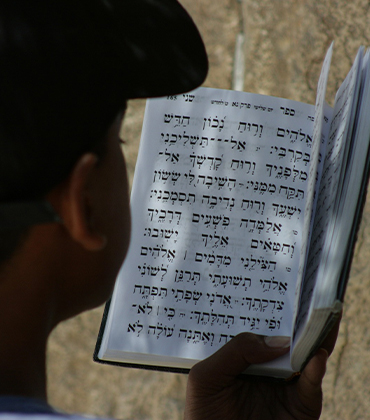 ספר יום שלישי פרק נא שני
אֱלֹהִים וְרוּחַ נָכוֹן חַדֵּשׁ
בְּקִרְבִּי: אַל־תַּשְׁלִיכֵנִי
מִלְּפָנֶיךָ וְרוּחַ קָדְשְׁךָ אַל־
תִּקַּח מִמֶּנִּי: הָשִׁיבָה לִּי שְׂשׂוֹן
יִשְׁעֶךָ וְרוּחַ נְדִיבָה תִסְמְכֵנִי:
אֲלַמְּדָה פֹשְׁעִים דְּרָכֶיךָ
וְחַטָּאִים אֵלֶיךָ יָשׁוּבוּ:
הַצִּילֵנִי מִדָּמִים | אֱלֹהִים
אֱלֹהֵי תְּשׁוּעָתִי תְּרַנֵּן לְשׁוֹנִי
צִדְקָתֶךָ: אֲדֹנָי שְׂפָתַי תִּפְתָּח
וּפִי יַגִּיד תְּהִלָּתֶךָ: כִּי | לֹא־
וְאֶתֵּנָה עוֹלָה לֹא